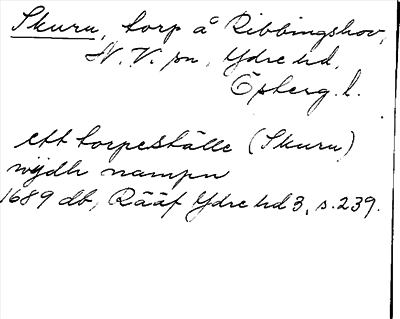 Skuru, torp å Ribbingshov,
N. V. sn, Ydre hd,
Östterg. l.
ett torpeställe (Skuru)
wijdh nampn
1689 db, Rääf Ydre hd 3, s. 239.